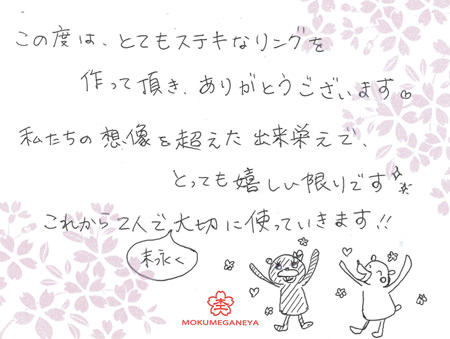 この度は、とてもステキなリングを
作って頂き、ありがとうございます。
私たちの想像を超えた出来栄えで、
とっても嬉しい限りです
これから2人で大切に使っていきます!!
末永く
MOKUMEGANEYA